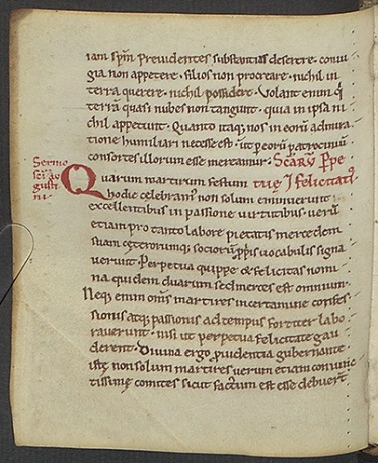 iam spm previdentes substantias deserere · coniu
gia non appetere · filios non procreare · nichil in
terra querere · nichil possidere · Volant enim q̅
terrā quasi nubes non tangunt · quia in ipsa ni
chil appetunt · Quanto itaq; nos in eorū admira
tione humiliari necesse est · ut p eorū patrociniū
consortes illorum esse mereamur · Scārū Ppe
Sermo
sci au
gusti
ni ·
Quarum martirum festum tue & felicitatis
hodie celebram̅ non solum eminuerunt in
excellentibus in passione uirtutibus · uerū
etiam pro tanto labore pietatis mercedem
suam ceterorumq; sociorū ppriis uocabulis signa
uerunt · Perpetua quippe & felicitas nomi
na quidem duarum sed merces est omnium ·
Neq; enim om̅s martires in certamine confes
sionis atq; passionis ad tempus fortiter labo
rauerunt · nisi ut perpetua felicitate gau
derent · Diuina ergo puidentia gubernante ·
non solum martires uerum etiam coniunc
tissime comites sicut factum est esse debuert̅